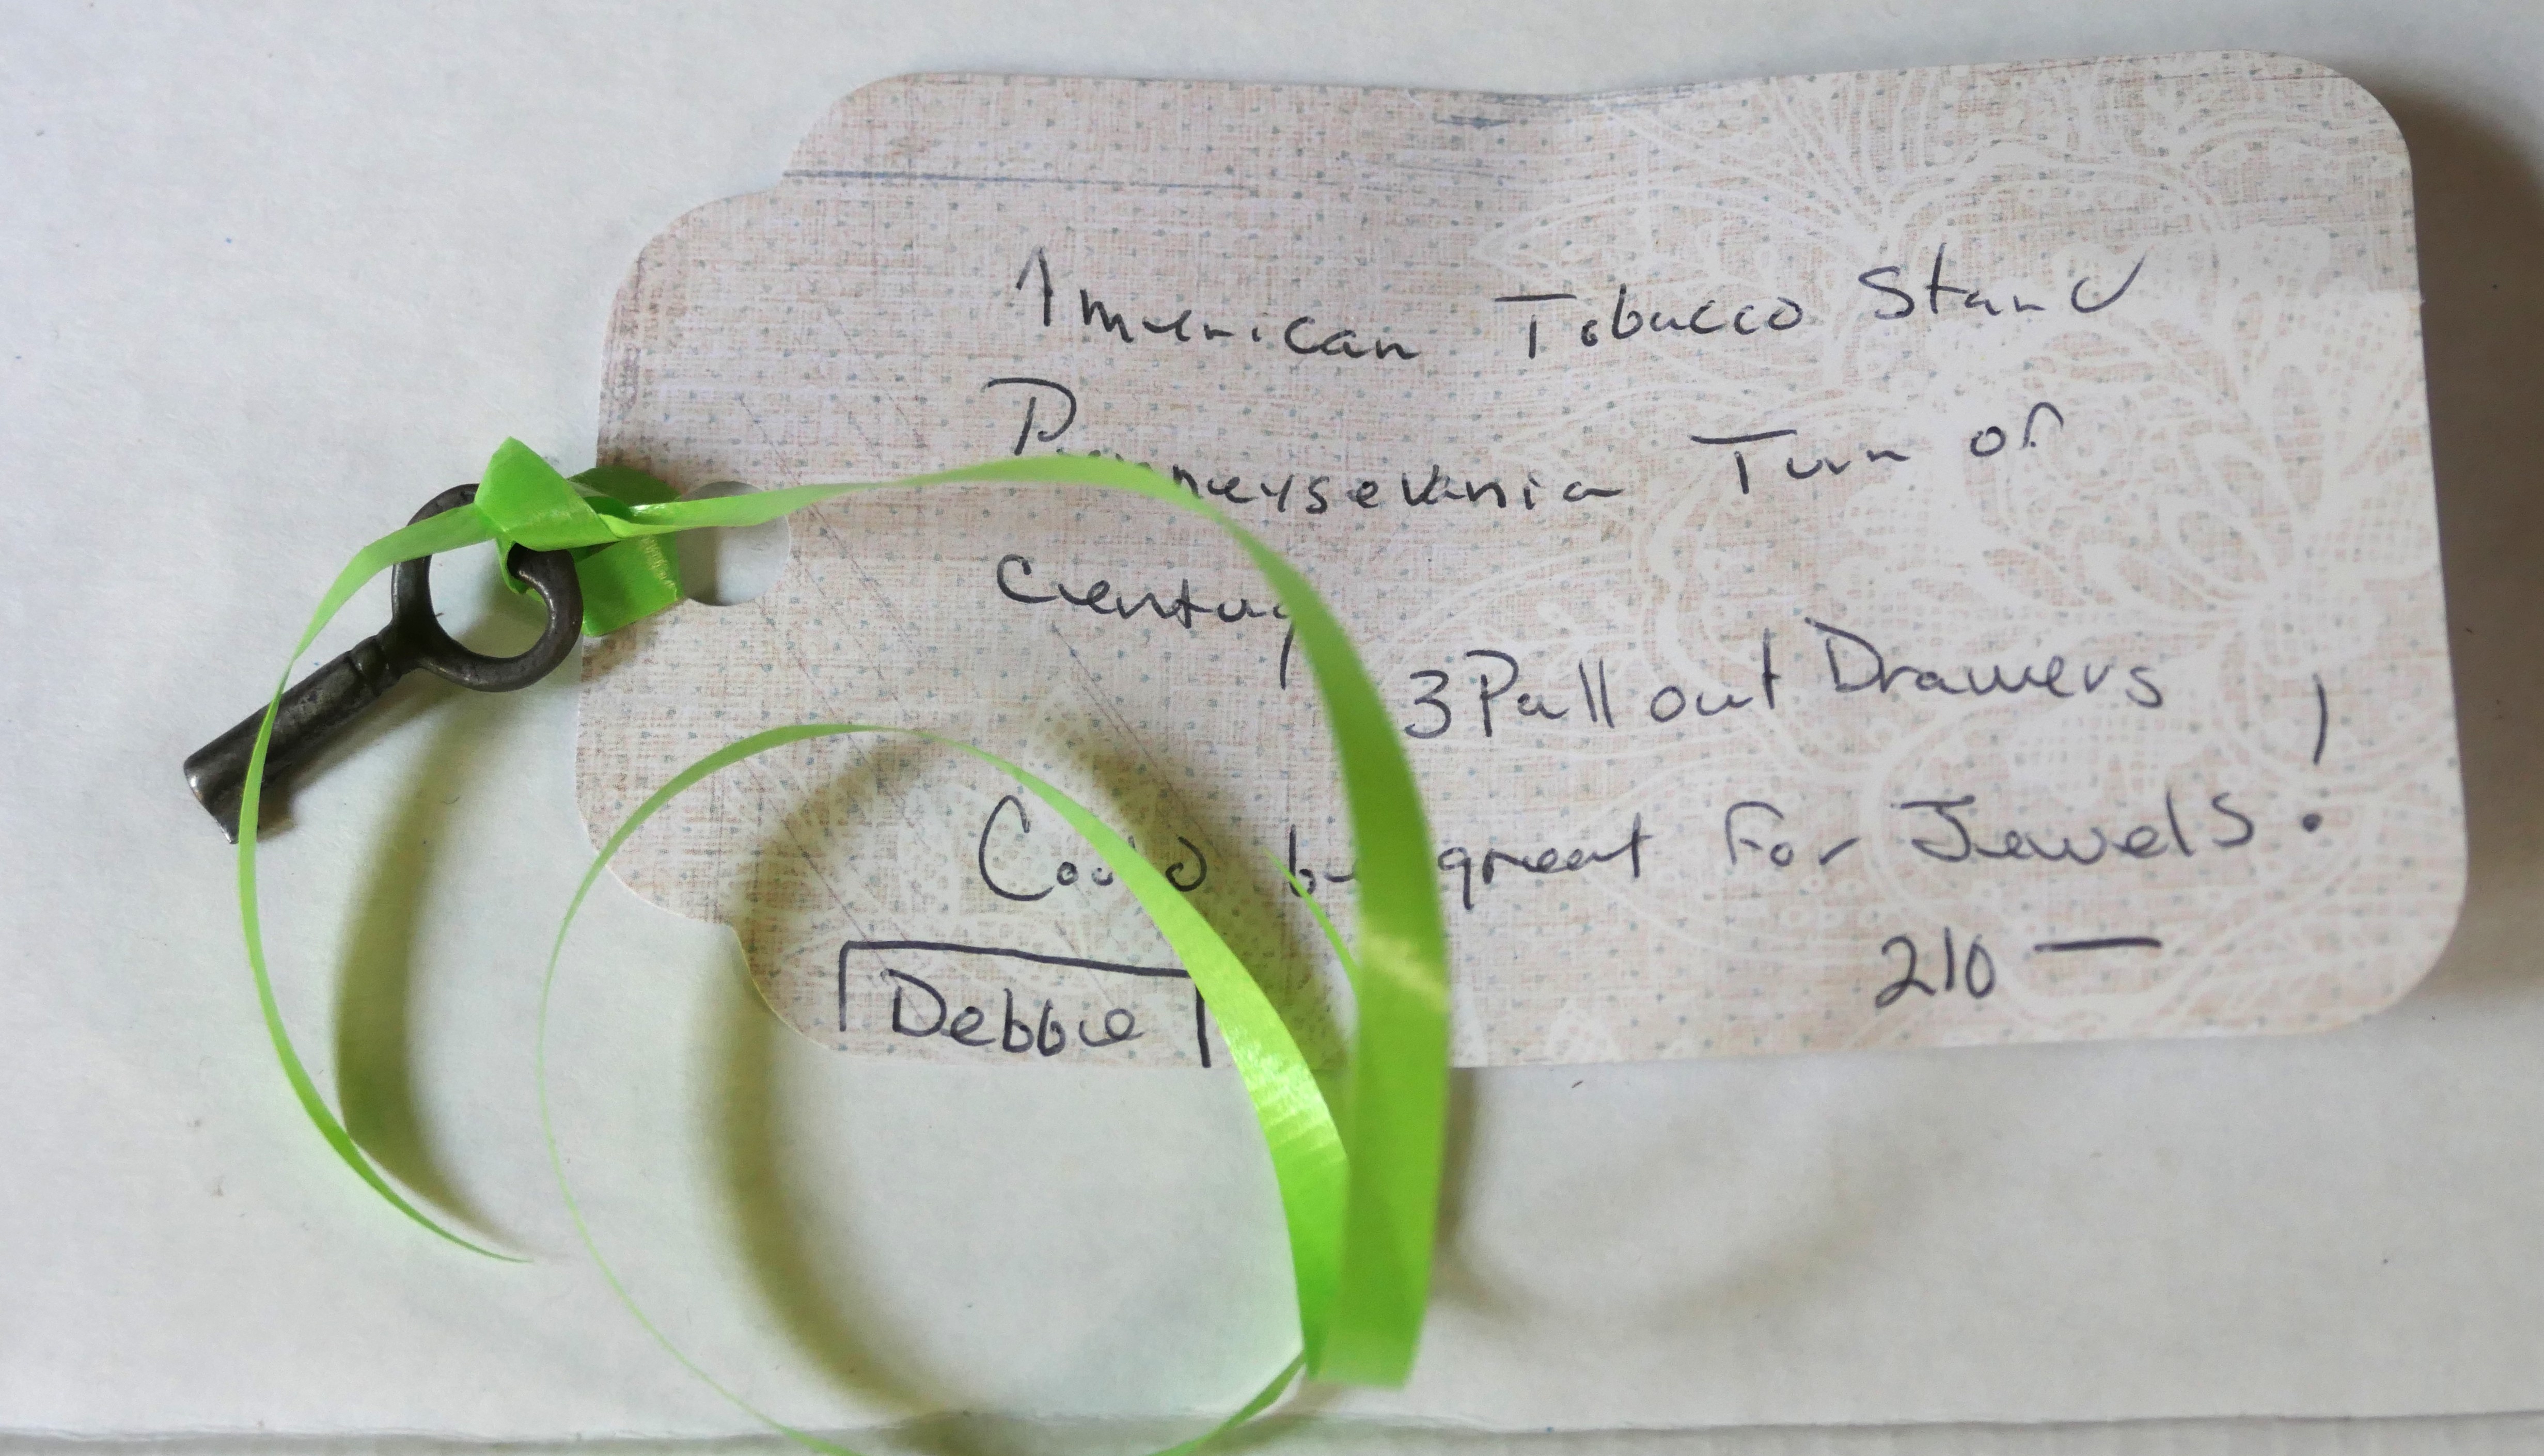 American Tobacco Stand
Penneysevania Turn of
Century
3 Pull out Drawers
Could be great for Jewels!
210 —
Debbie